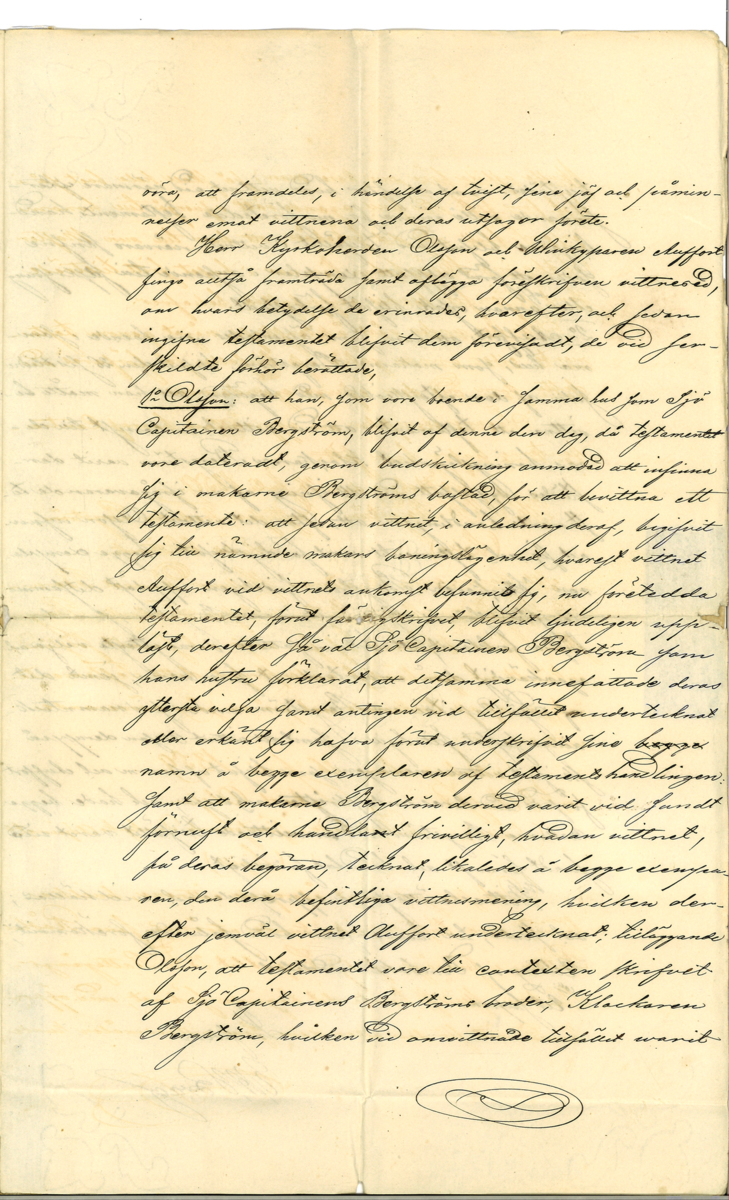 vöra, att framdeles, i händelse af tvist, sine jäf och påmin-
nelser emot vittnena och deras utsagor förete.
Herr Kyrkoherden Olsson och Auffort
fingo alltså framträda samt aflägga föreskrifven vittnesed,
om hvars betydelse de erinrades, hvarefter, och sedan
ingifna testamentet blifvit dem förevisadt, de vid ser-
skildte förhör berättade,
1o Olsson: att han, som vore boende i samma hus som Sjö
Capitainen Bergström, blifvit af denne den dag, då testamentet
vore dateradt, genom budskickning anmodad att infinna
sig i makarne Bergströms bostad, för att bevittna ett
testamente: att sedan vittnet, i anledning deraf, begifvit
sig till nämnde makars boningslägenhet, hvarest vittnet
Auffort vid vittnets ankomst befunnits sig, nu företedda
testamentet, förut färdigskrifvet, blifvit ljudeligen upp-
läst, derefter så väl Sjö Capitainen Bergström som
hans hustru förklarat, att detsamma innefattade deras
yttersta vilja samt antingen vid tillfället undertecknat
eller erkänt sig hafva förut underskrifvit sine begge
namn å begge exemplaren af testamentshandlingen:
samt att makarne Bergström dervid varit vid sundt
förnuft och handlat frivilligt, hvadan vittnet,
på deras begäran, tecknat, likaledes å begge exempla-
ren, den derå befintliga vittnesmening, hvilken der-
efter jemväl vittnet Auffort undertecknat; tilläggande
Olsson, att testamentet vore till contexten skrifvit
af Sjö Capitainens Bergströms broder, Klockaren
Bergström, hvilken vid omvittnade tillfället warit